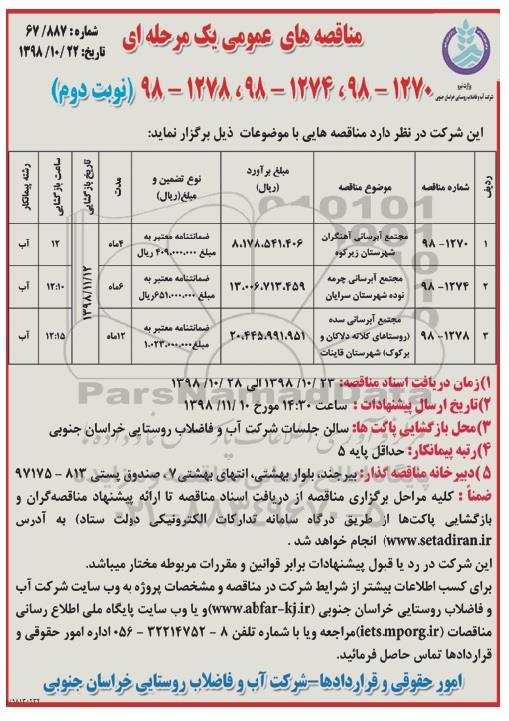 مناقصه های عمومی یک مرحله ای
شماره: ۶۷/۸۸۷
تاریخ: ۱۳۹۸/۱۰/۲۲
وزارت نیرو
شرکت آب و فاضلاب روستایی خراسان جنوبی
۱۲۷۰ – ۹۸ ، ۱۲۷۴ – ۹۸ ، ۱۲۷۸ – ۹۸ (نوبت دوم)
این شرکت در نظر دارد مناقصه هایی با موضوعات ذیل برگزار نماید:
ردیف شماره مناقصه موضوع مناقصه مبلغ برآورد (ریال) نوع تضمین و مبلغ(ریال) مدت تاریخ بازگشایی ساعت بازگشایی رشته پیمانکار
۱ ۱۲۷۰–۹۸ مجتمع آبرسانی آهنگران شهرستان زیرکوه ۸،۱۷۸،۵۴۱،۴۰۶ ضمانتنامه معتبر به مبلغ ۴۰۹،۰۰۰،۰۰۰ ریال ۴ماه ۱۳۹۸/۱۱/۱۲ ۱۲ آب
۲ ۱۲۷۴–۹۸ مجتمع آبرسانی چرمه نوده شهرستان سرایان ۱۳،۰۰۶،۷۱۳،۴۵۹ ضمانتنامه معتبر به مبلغ ۶۵۱،۰۰۰،۰۰۰ریال ۶ماه ۱۲:۱۰ آب
۳ ۱۲۷۸–۹۸ مجتمع آبرسانی سده (روستاهای کلاته دلاکان و برکوک) شهرستان قاینات ۲۰،۴۴۵،۹۹۱،۹۵۱ ضمانتنامه معتبر به مبلغ۱،۰۲۳،۰۰۰،۰۰۰ ۱۲ماه ۱۲:۱۵ آب
۱)زمان دریافت اسناد مناقصه: ۲۳ /۱۰/ ۱۳۹۸ الی ۲۸ /۱۰/ ۱۳۹۸
۲)تاریخ ارسال پیشنهادات : ساعت ۱۴:۳۰ مورخ ۱۰ /۱۱/ ۱۳۹۸
۳)محل بازگشایی پاکت ها: سالن جلسات شرکت آب و فاضلاب روستایی خراسان جنوبی
۴)رتبه پیمانکار: حداقل پایه ۵
۵)دبیرخانه مناقصه گذار: بیرجند، بلوار بهشتی، انتهای بهشتی۷، صندوق پستی ۸۱۳ – ۹۷۱۷۵
ضمناً : کلیه مراحل برگزاری مناقصه از دریافت اسناد مناقصه تا ارائه پیشنهاد مناقصه‌گران و
بازگشایی پاکت‌ها از طریق درگاه سامانه تدارکات الکترونیکی دولت ستاد) به آدرس
www.setadiran.ir) انجام خواهد شد .
این شرکت در رد یا قبول پیشنهادات برابر قوانین و مقررات مربوطه مختار میباشد.
برای کسب اطلاعات بیشتر از شرایط شرکت در مناقصه و مشخصات پروژه به وب سایت شرکت آب
و فاضلاب روستایی خراسان جنوبی (www.abfar-kj.ir)و یا وب سایت پایگاه ملی اطلاع رسانی
مناقصات (iets.mporg.ir)مراجعه ویا با شماره تلفن ۸ – ۳۲۲۱۴۷۵۲ – ۰۵۶ اداره امور حقوقی و
قراردادها تماس حاصل فرمائید.
امور حقوقی و قراردادها–شرکت آب و فاضلاب روستایی خراسان جنوبی
ParsNamadData
۰۲۱-۸۸۳۴۹۶۷۰-۵